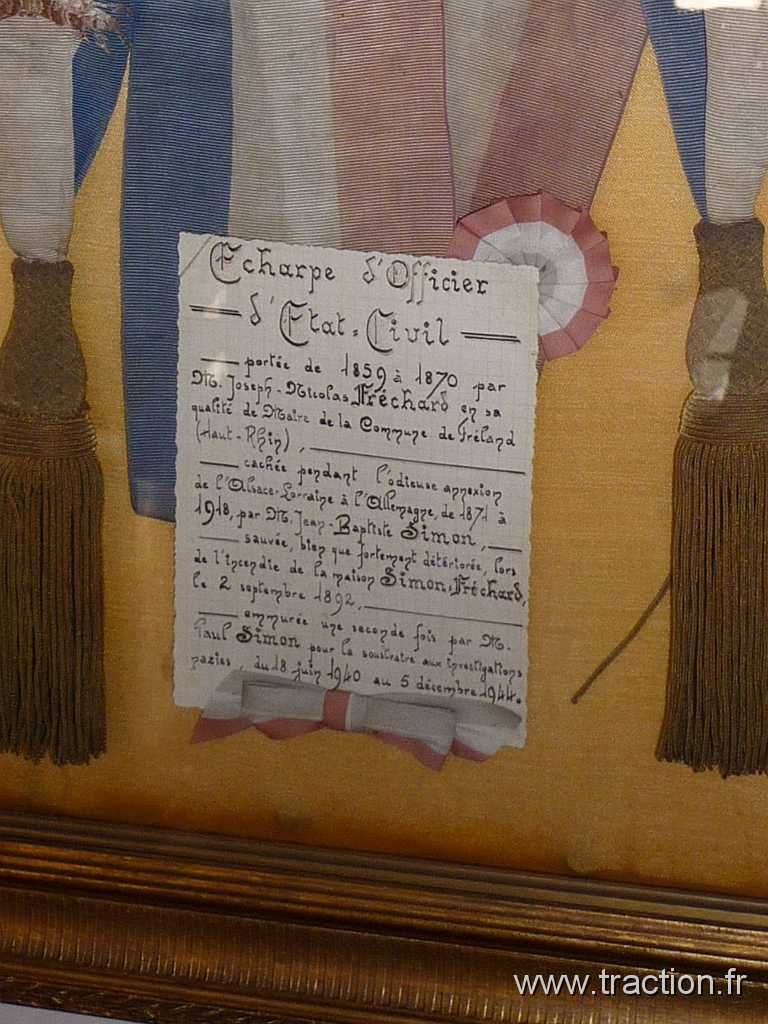 Echarpe d'Officier
d'Etat-Civil
portée de 1859 à 1870 par
M. Joseph-Nicolas Fréchard en sa
qualité de Maire de la Commune de Fréland
(Haut-Rhin),
cachée pendant l'odieuse annexion
de l'Alsace-Lorraine à l'Allemagne, de 1871 à
1918, par M. Jean-Baptiste Simon,
sauvée, bien que fortement détériorée, lors
de l'incendie de la maison Simon-Fréchard,
le 2 septembre 1892,
emmurée une seconde fois par M.
Paul Simon pour la soustraire aux investigations
nazies, du 18 juin 1940 au 5 décembre 1944.
www.traction.fr